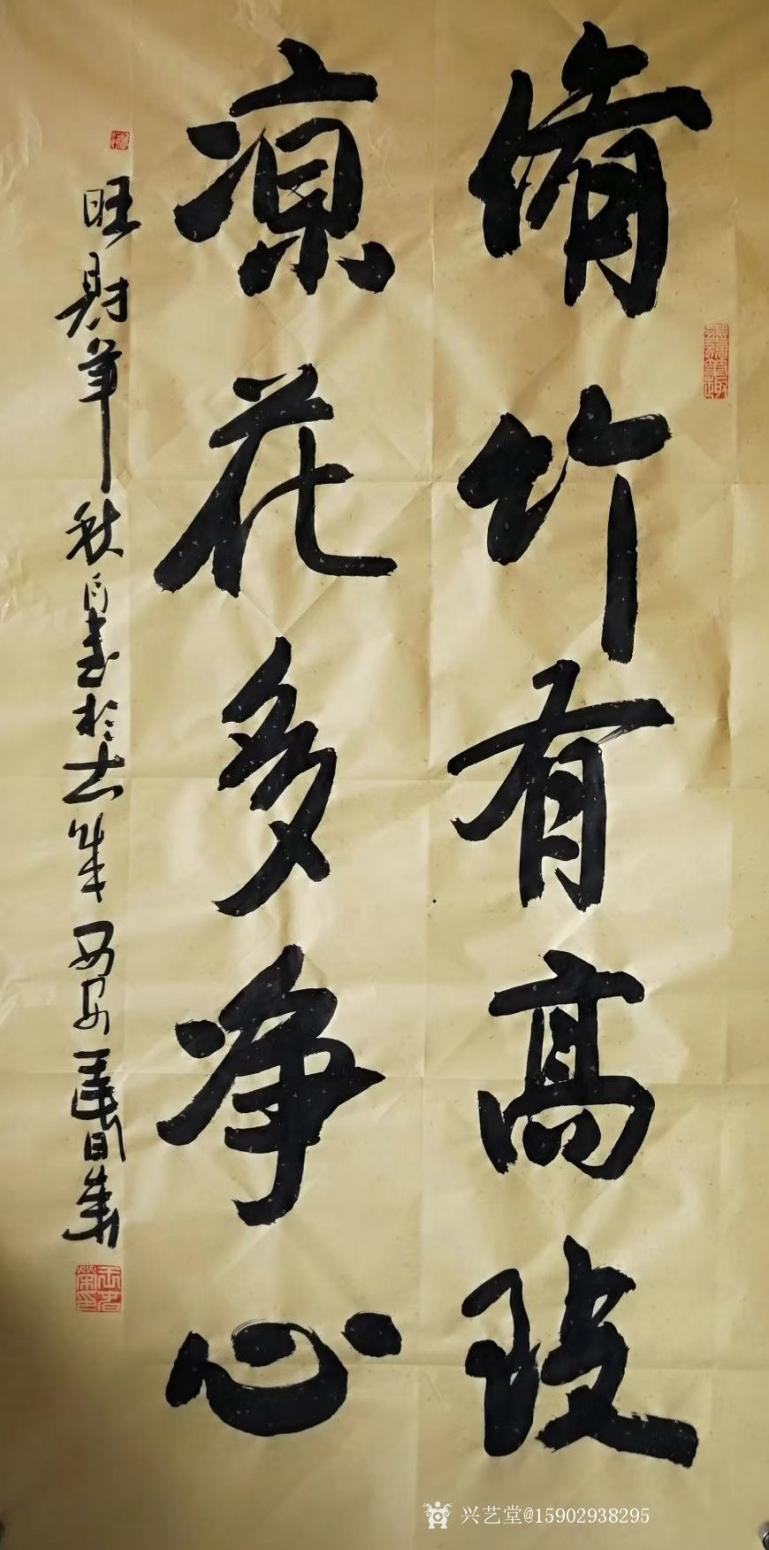 脩竹有高致
凉花多净心
旺财年秋月书於古城西安
兴艺堂@15902938295